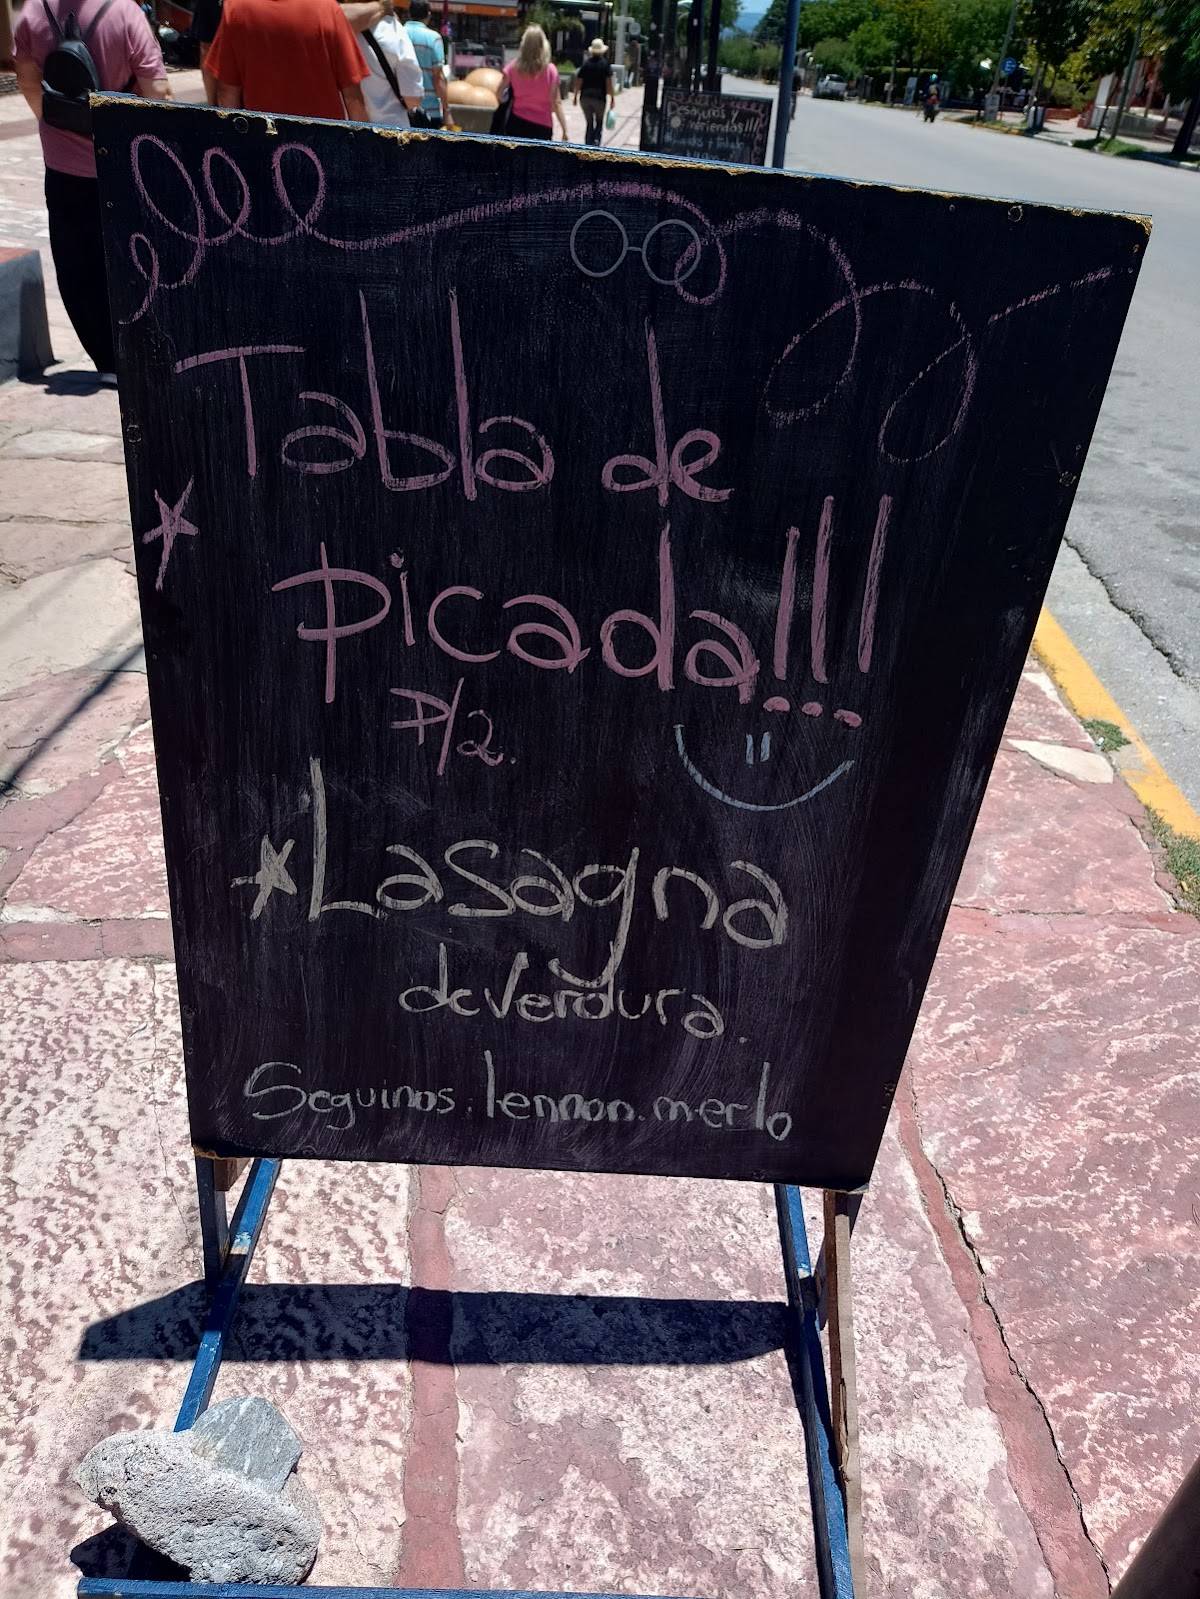 Tabla de
Picada!!!
P/2.
Lasagna
de Verdura.
Seguinos: lennon.merlo
Desayunos y
Meriendas!!!